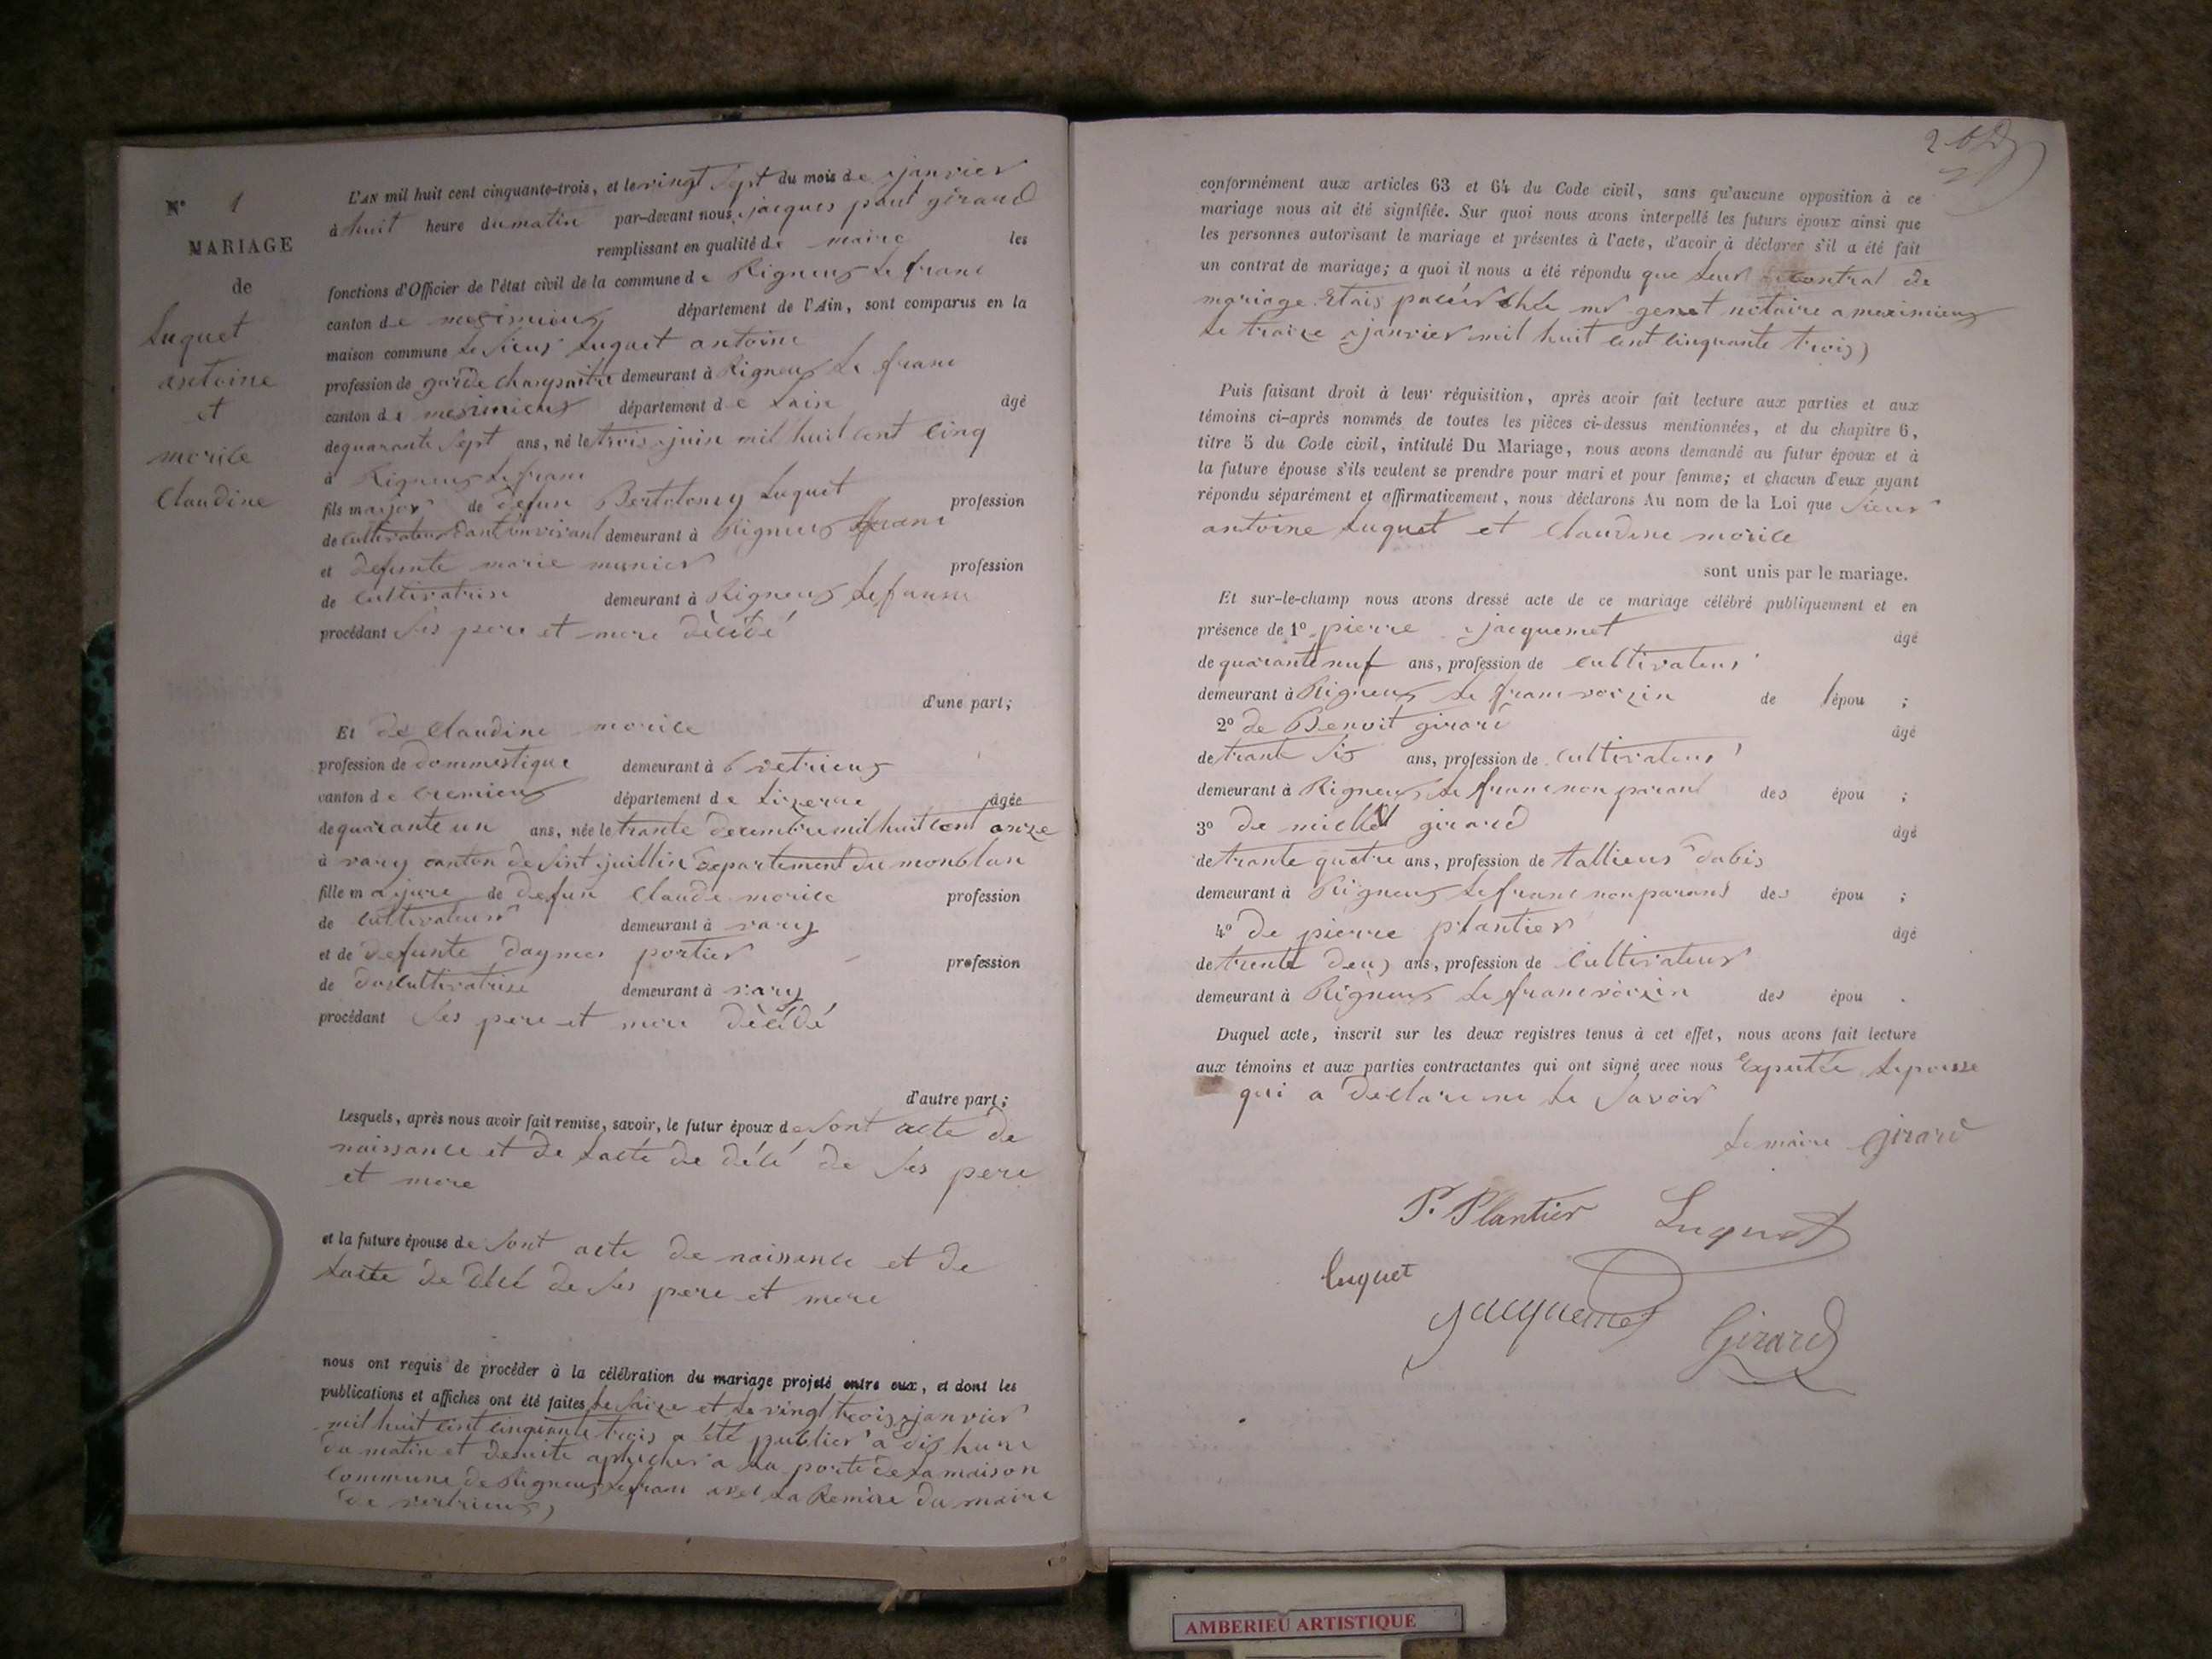 N° 1
MARIAGE
de
Luquet
antoine
et
morice
Claudine
L'AN mil huit cent cinquante-trois, et le vingt sept du mois de janvier
à huit heure du matin par-devant nous jacques paul girard
remplissant en qualité de maire les
fonctions d'Officier de l'état civil de la commune de Rigneux Le franc
canton de meximieux département de l'Ain, sont comparus en la
maison commune Le sieur Luquet antoine
profession de garde champaitre demeurant à Rigneux Le franc
canton de meximieux département de Lain âgé
de quarante sept ans, né le trois juin mil huit cent cinq
à Rigneux Le franc
fils major de defun Bertolomy Luquet profession
de cultivateur dant son vivant demeurant à Rigneux Lefranc
et defunte marie munier profession
de cultivatrise demeurant à Rigneux Lefranc
procédant ses pere et mere décédé
d'une part;
Et de Claudine morice
profession de dommestique demeurant à vetrieux
canton de cremieux département de Lizerre âgée
de quarante un ans, née le trante decembre mil huit cent onze
à rary canton de sint juillin departement du monblan
fille majure de defun Claude morice profession
de cultivateur demeurant à rary
et de defunte daymes portier profession
de dascultivatrise demeurant à rary
procédant ses pere et mere décédé
d'autre part;
Lesquels, après nous avoir fait remise, savoir, le futur époux de sont acte de
naissance et de Lacte de décé de ses pere
et mere
et la future épouse de sont acte de naissance et de
Lacte de décé de ses pere et mere
nous ont requis de procéder à la célébration du mariage projeté entre eux, et dont les
publications et affiches ont été faites Le saize et Le vingt trois janvier
mil huit cent cinquante trois a été publier a dix hure
du matin et desuite aphicher a La porte de La maison
commune de Rigneux Lefranc avec La Remise du maire
de vertrieux
conformément aux articles 63 et 64 du Code civil, sans qu'aucune opposition à ce
mariage nous ait été signifiée. Sur quoi nous avons interpellé les futurs époux ainsi que
les personnes autorisant le mariage et présentes à l'acte, d'avoir à déclarer s'il a été fait
un contrat de mariage; a quoi il nous a été répondu que Leur contrat de
mariage Etais passér chée mr genet notaire a meximieux
Le traize janvier mil huit cent cinquante trois
Puis faisant droit à leur réquisition, après avoir fait lecture aux parties et aux
témoins ci-après nommés de toutes les pièces ci-dessus mentionnées, et du chapitre 6,
titre 5 du Code civil, intitulé Du Mariage, nous avons demandé au futur époux et à
la future épouse s'ils veulent se prendre pour mari et pour femme; et chacun d'eux ayant
répondu séparément et affirmativement, nous déclarons Au nom de la Loi que sieur
antoine Luquet et Claudine morice
sont unis par le mariage.
Et sur-le-champ nous avons dressé acte de ce mariage célébré publiquement et en
présence de 1° pierre jacquemet âgé
de quarante neuf ans, profession de cultivateur
demeurant à Rigneux Le franc voizin de l'épou ;
2° de Benoit girard âgé
de trante six ans, profession de cultivateur
demeurant à Rigneux Le franc non parant des épou ;
3° de michel girard âgé
de trante quatre ans, profession de tallieur dabis
demeurant à Rigneux Lefranc non parant des épou ;
4° de pierre plantier âgé
de trente deux ans, profession de cultivateur
demeurant à Rigneux Le franc voizin des épou .
Duquel acte, inscrit sur les deux registres tenus à cet effet, nous avons fait lecture
aux témoins et aux parties contractantes qui ont signé avec nous Exputée Lepousse
qui a déclare ne Le savoir
Le maire Girard
P. Plantier Luquet
Luquet
Jacquemet Girard
AMBERIEU ARTISTIQUE